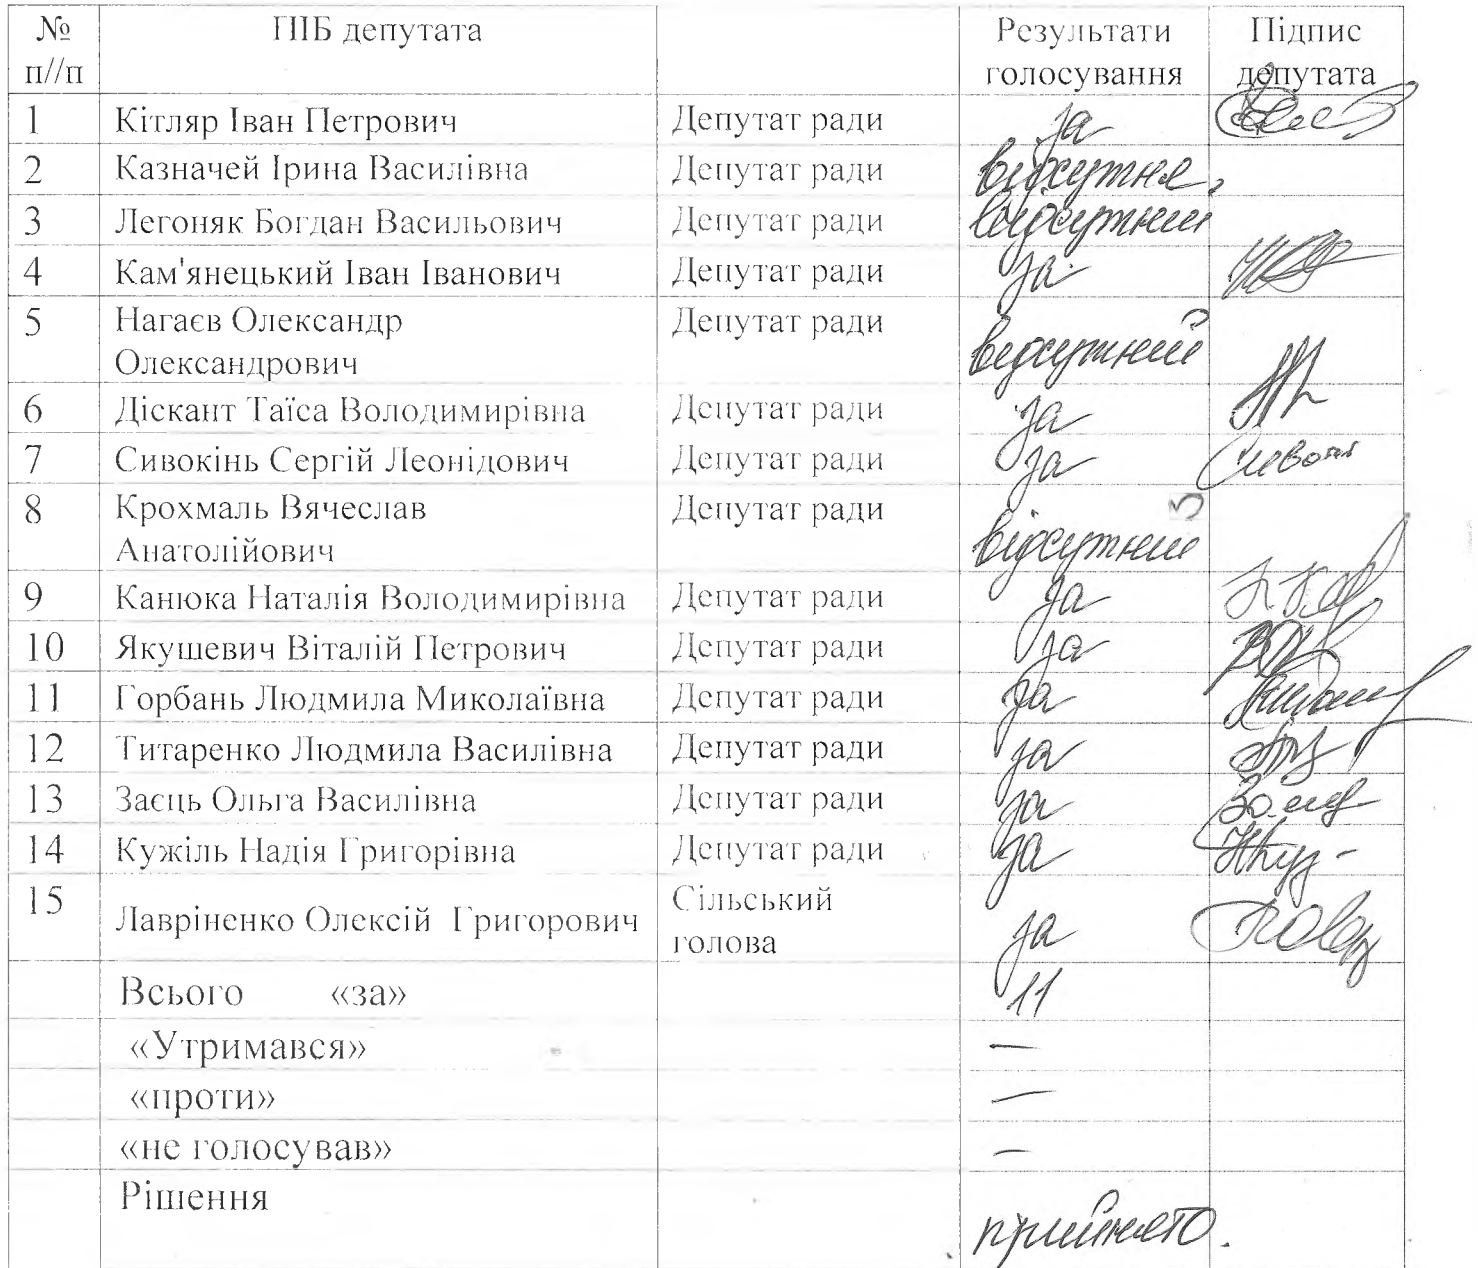 № ПІБ депутата Результати Підпис
п//п голосування депутата
1 Кітляр Іван Петрович Депутат ради за
2 Казначей Ірина Василівна Депутат ради відсутня.
3 Легоняк Богдан Васильович Депутат ради відсутний
4 Кам'янецький Іван Іванович Депутат ради за
5 Нагаєв Олександр Депутат ради
Олександрович відсутний
6 Діскант Таїса Володимирівна Депутат ради за
7 Сивокінь Сергій Леонідович Депутат ради за
8 Крохмаль Вячеслав Депутат ради
Анатолійович відсутний
9 Канюка Наталія Володимирівна Депутат ради за
10 Якушевич Віталій Петрович Депутат ради за
11 Горбань Людмила Миколаївна Депутат ради за
12 Титаренко Людмила Василівна Депутат ради за
13 Заєць Ольга Василівна Депутат ради за
14 Кужіль Надія Григорівна Депутат ради за
15 Лавріненко Олексій Григорович Сільський
голова за
Всього «за» 11
«Утримався» —
«проти» —
«не голосував» —
Рішення
прийнято.